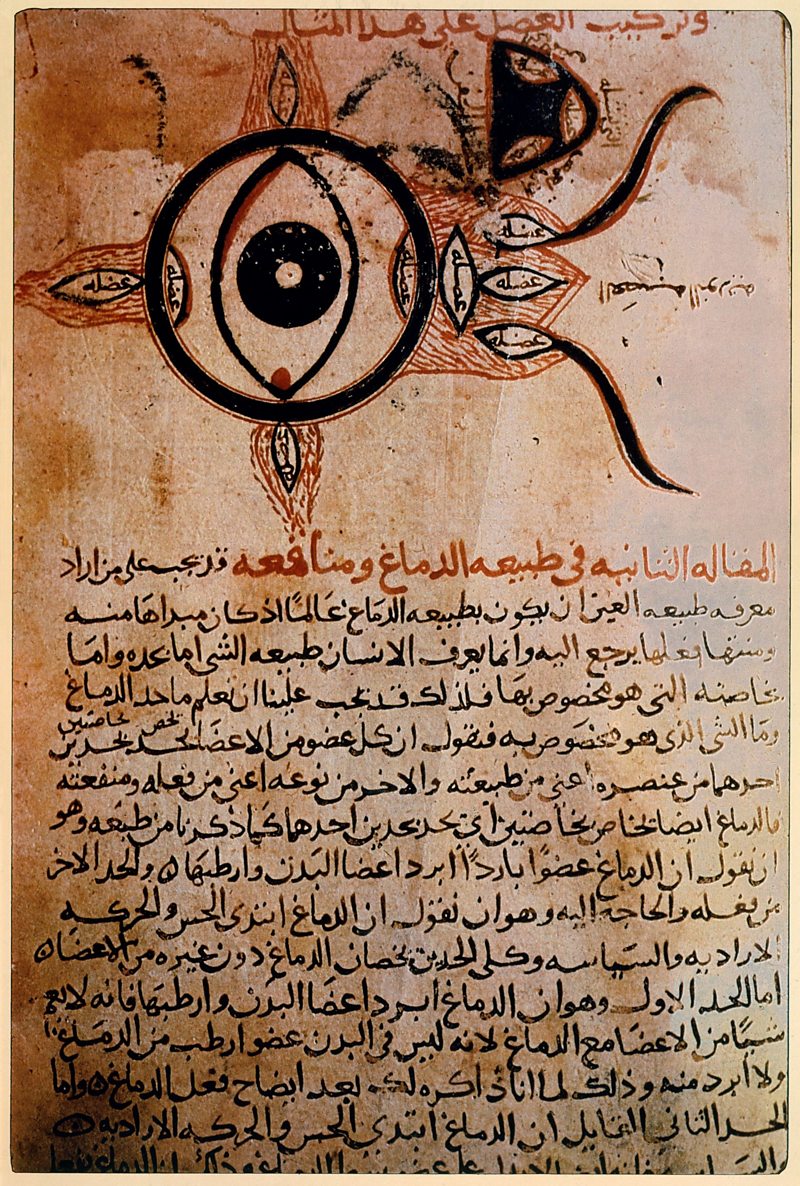 وتركيب العضل على هذا المثال
عضله
عضله
عضله
عضله
عضله
عضله
عضله
عضله
عضله
المقاله الثانيه فى طبيعه الدماغ ومنافعه قد يجب على من اراد
معرفه طبيعه العين ان يكون بطبيعه الدماغ عالمًا اذ كان مبداها منه
ومنتها فعلها يرجع اليه وانما يعرف الانسان طبيعه الشى اما بحده واما
بخاصته التى هو مخصوص بها فلذلك قد يجب علينا ان نعلم ما حد الدماغ
وما الشى الذى هو مخصوص به فنقول ان كل عضو من الاعضا يحد بحدين
احدهما من عنصره اعنى من طبيعته والاخر من نوعه اعنى من فعله ومنفعته
فالدماغ ايضا بخاصتين اى يحد بحدين احدهما كما ذكرنا من طبعه وهو
ان نقول ان الدماغ عضوًا باردًا ابرد اعضا البدن وارطبها والحد الاخر
من فعله والحاجه اليه وهو ان نقول ان الدماغ ابتدى الحس والحركه
الاراديه والسياسه وكلى الحدين يخصان الدماغ دون غيره من الاعضا
اما الحد الاول وهو ان الدماغ ابرد اعضا البدن وارطبها فانه لا يعم
شيًا من الاعضا مع الدماغ لانه ليس فى البدن عضو ارطب من الدماغ
ولا ابرد منه وذلك لما انا ذاكره لك بعد ايضاح فعل الدماغ واما
الحد الثانى القايل ان الدماغ ابتدى الحس والحركه الاراديه